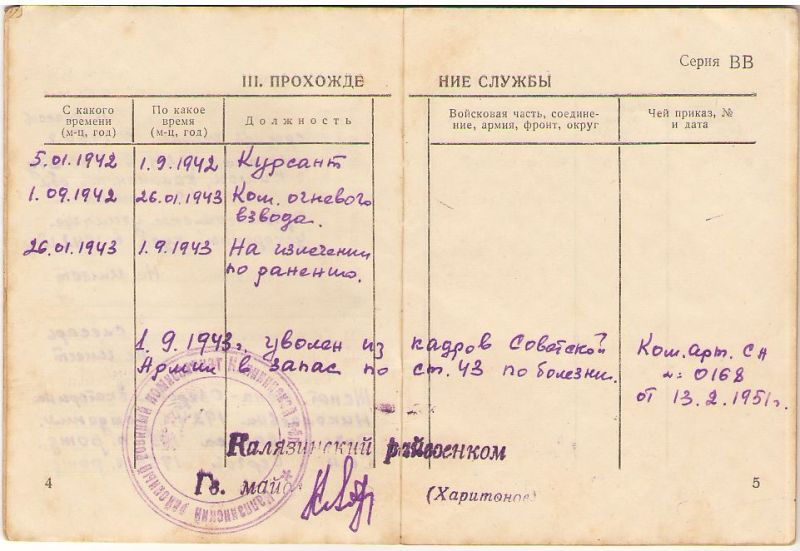 Серия ВВ
III. ПРОХОЖДЕНИЕ СЛУЖБЫ
С какого времени (м-ц, год)
По какое время (м-ц, год)
Должность
Войсковая часть, соедине-
ние, армия, фронт, округ
Чей приказ, №
и дата
5.01.1942 1.9.1942 Курсант
1.09.1942 26.01.1943 Ком. огневого
взвода.
26.01.1943 1.9.1943 На излечении
по ранению.
1.9.1943г. уволен из кадров Советской
Армии в запас по ст. 43 по болезни.
Ком. арт. СА
№: 0168
от 13.2.1951г.
Калязинский райвоенком
Гв. майо
(Харитонов)
4
5